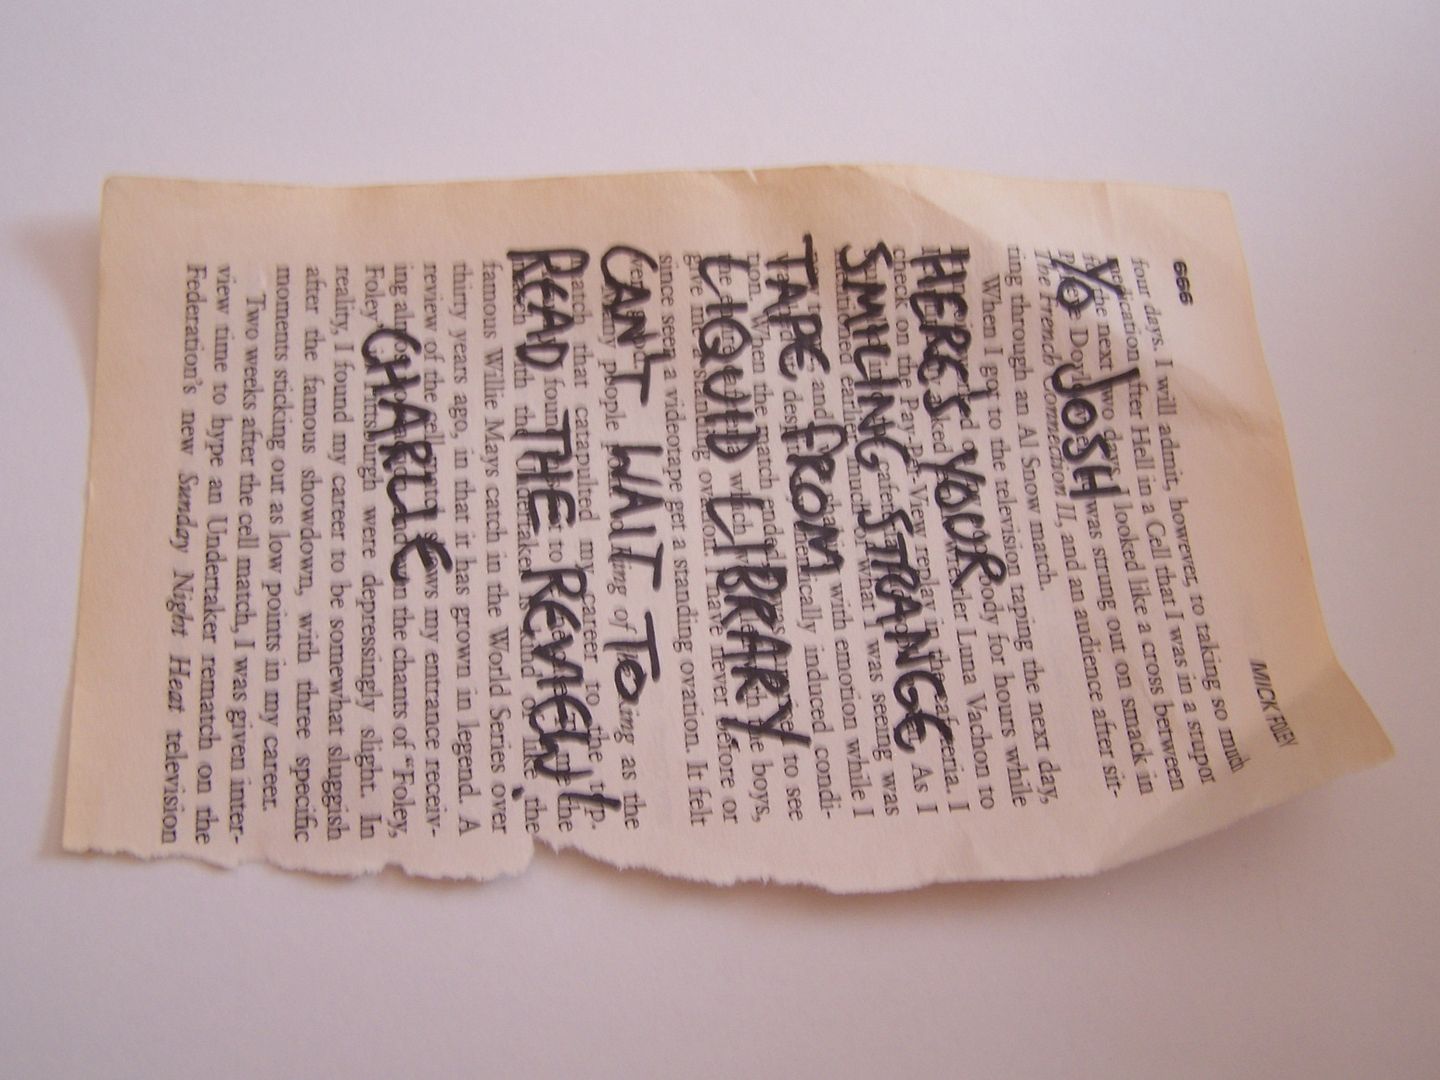 666 MICK FOLEY
YO JOSH
HERE'S YOUR
SMILING STRANGE
TAPE FROM
LIQUID LIBRARY
CAN'T WAIT TO
READ THE REVIEW!
CHARLIE
four days. I will admit, however, to taking so much
medication after Hell in a Cell that I was in a stupor
for the next two days. I looked like a cross between
Doyle was strung out on smack in
The French Connection II, and an audience after sit-
ting through an Al Snow match.
When I got to the television taping the next day,
body for hours while
wrestler Luna Vachon to
check on the Pay-Per-View replay in the cafeteria. As I
I was seeing was
mentioned earlier, much of what with emotion while I
and chemically induced condi-
tion. When the match ended, to see
the boys,
the which
give me a standing ovation. I have never before or
since seen a videotape get a standing ovation. It felt
very many people thing of as the
match that catapulted my career to the top.
found to the
the Undertaker is kind of like the
famous Willie Mays catch in the World Series over
thirty years ago, in that it has grown in legend. A
review of the cell shows my entrance receiv-
ing and even the chants of “Foley,
Foley” Pittsburgh were depressingly slight. In
reality, I found my career to be somewhat sluggish
after the famous showdown, with three specific
moments sticking out as low points in my career.
Two weeks after the cell match, I was given inter-
view time to hype an Undertaker rematch on the
Federation's new Sunday Night Heat television